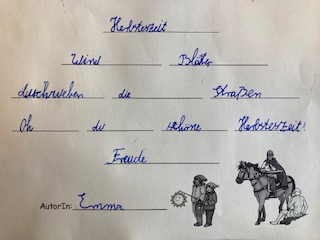 Herbsteszeit
Wind Blätter
durchweben die Straßen
Oh du schöne Herbsteszeit!
Freude
AutorIn: Emma